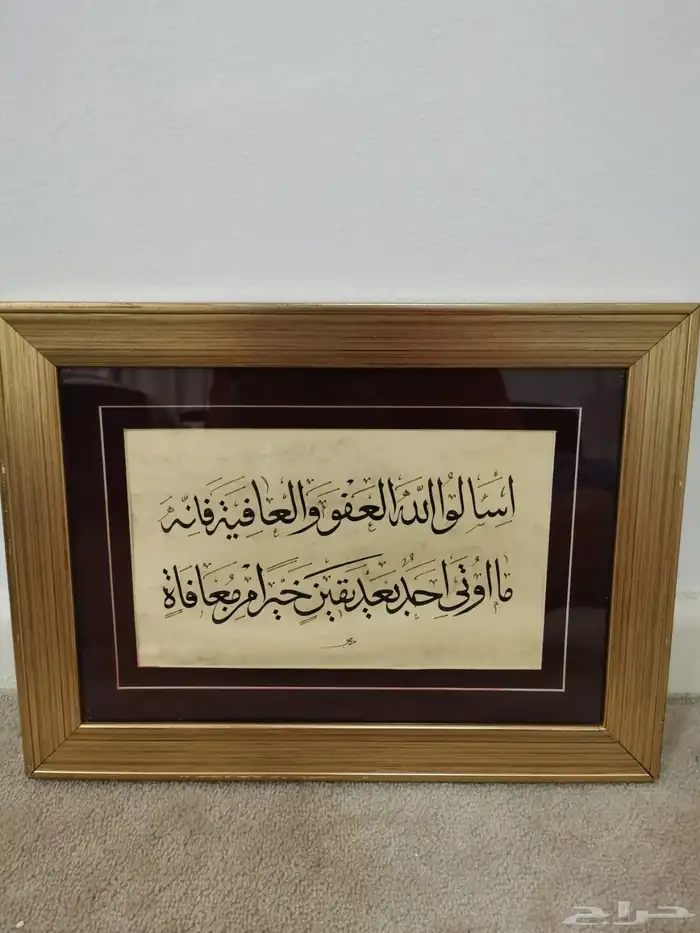 اِسْأَلُوا اللهَ العَفْوَ وَالعَافِيَةَ فَاِنَّهُ
مَا اُوتِىَ اَحَدٌ بَعْدَ يَقِينٍ خَيْرًا مِنْ مُعَافَاةٍ
حراج